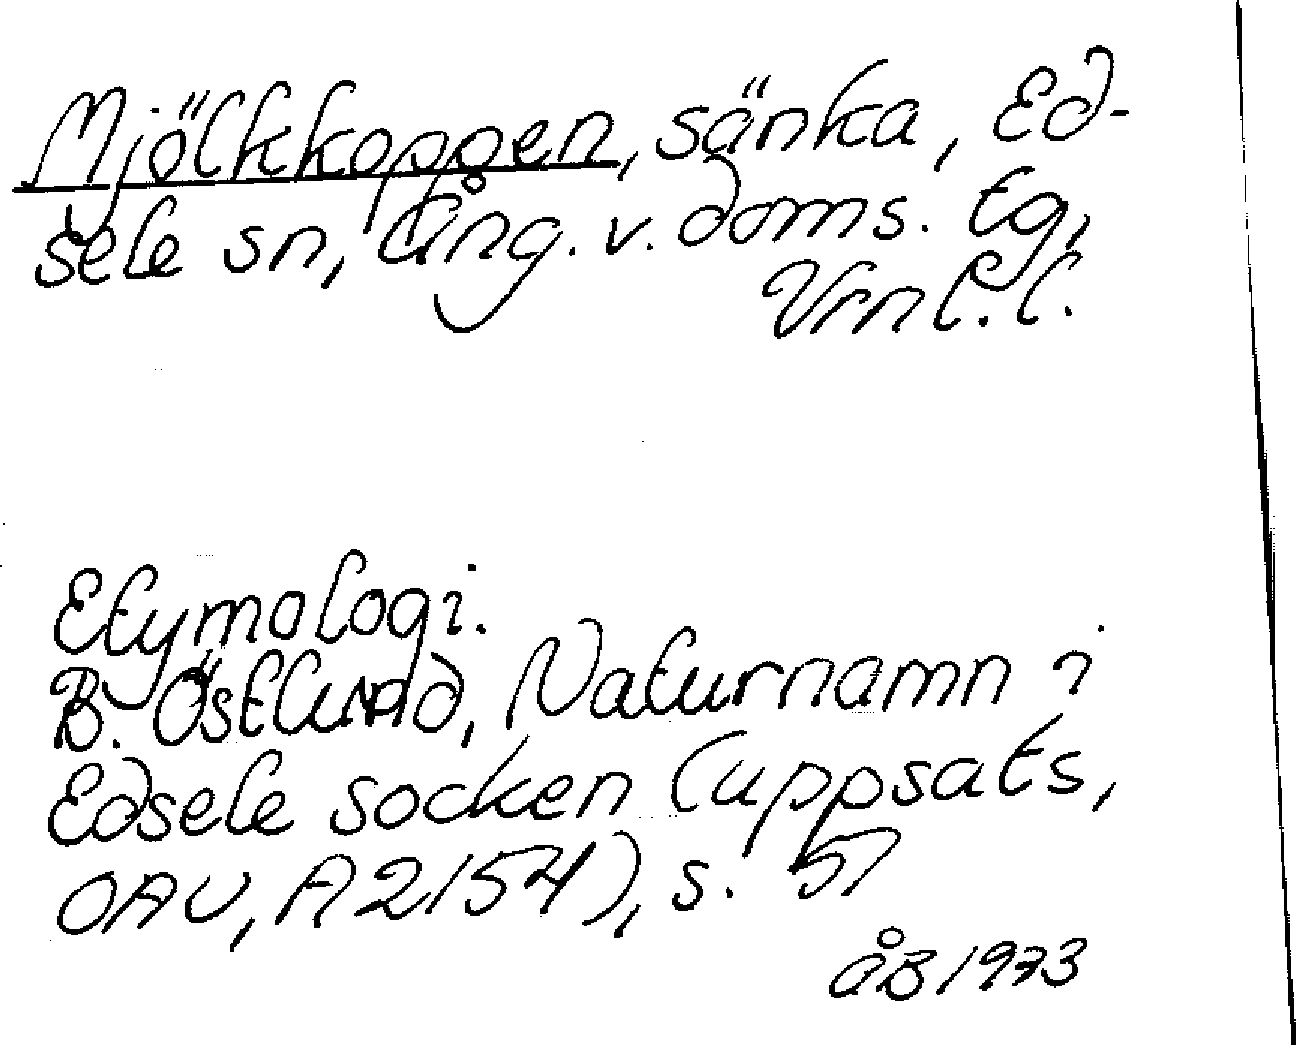 Mjölkkoppen, sänka, Ed-
sele sn, Ång. v. doms. tg,
Vrnl. l.
Etymologi.
B. Östlund, Naturnamn i
Edsele socken (uppsats,
OAU, A2154), s. 57
ÅB 1973